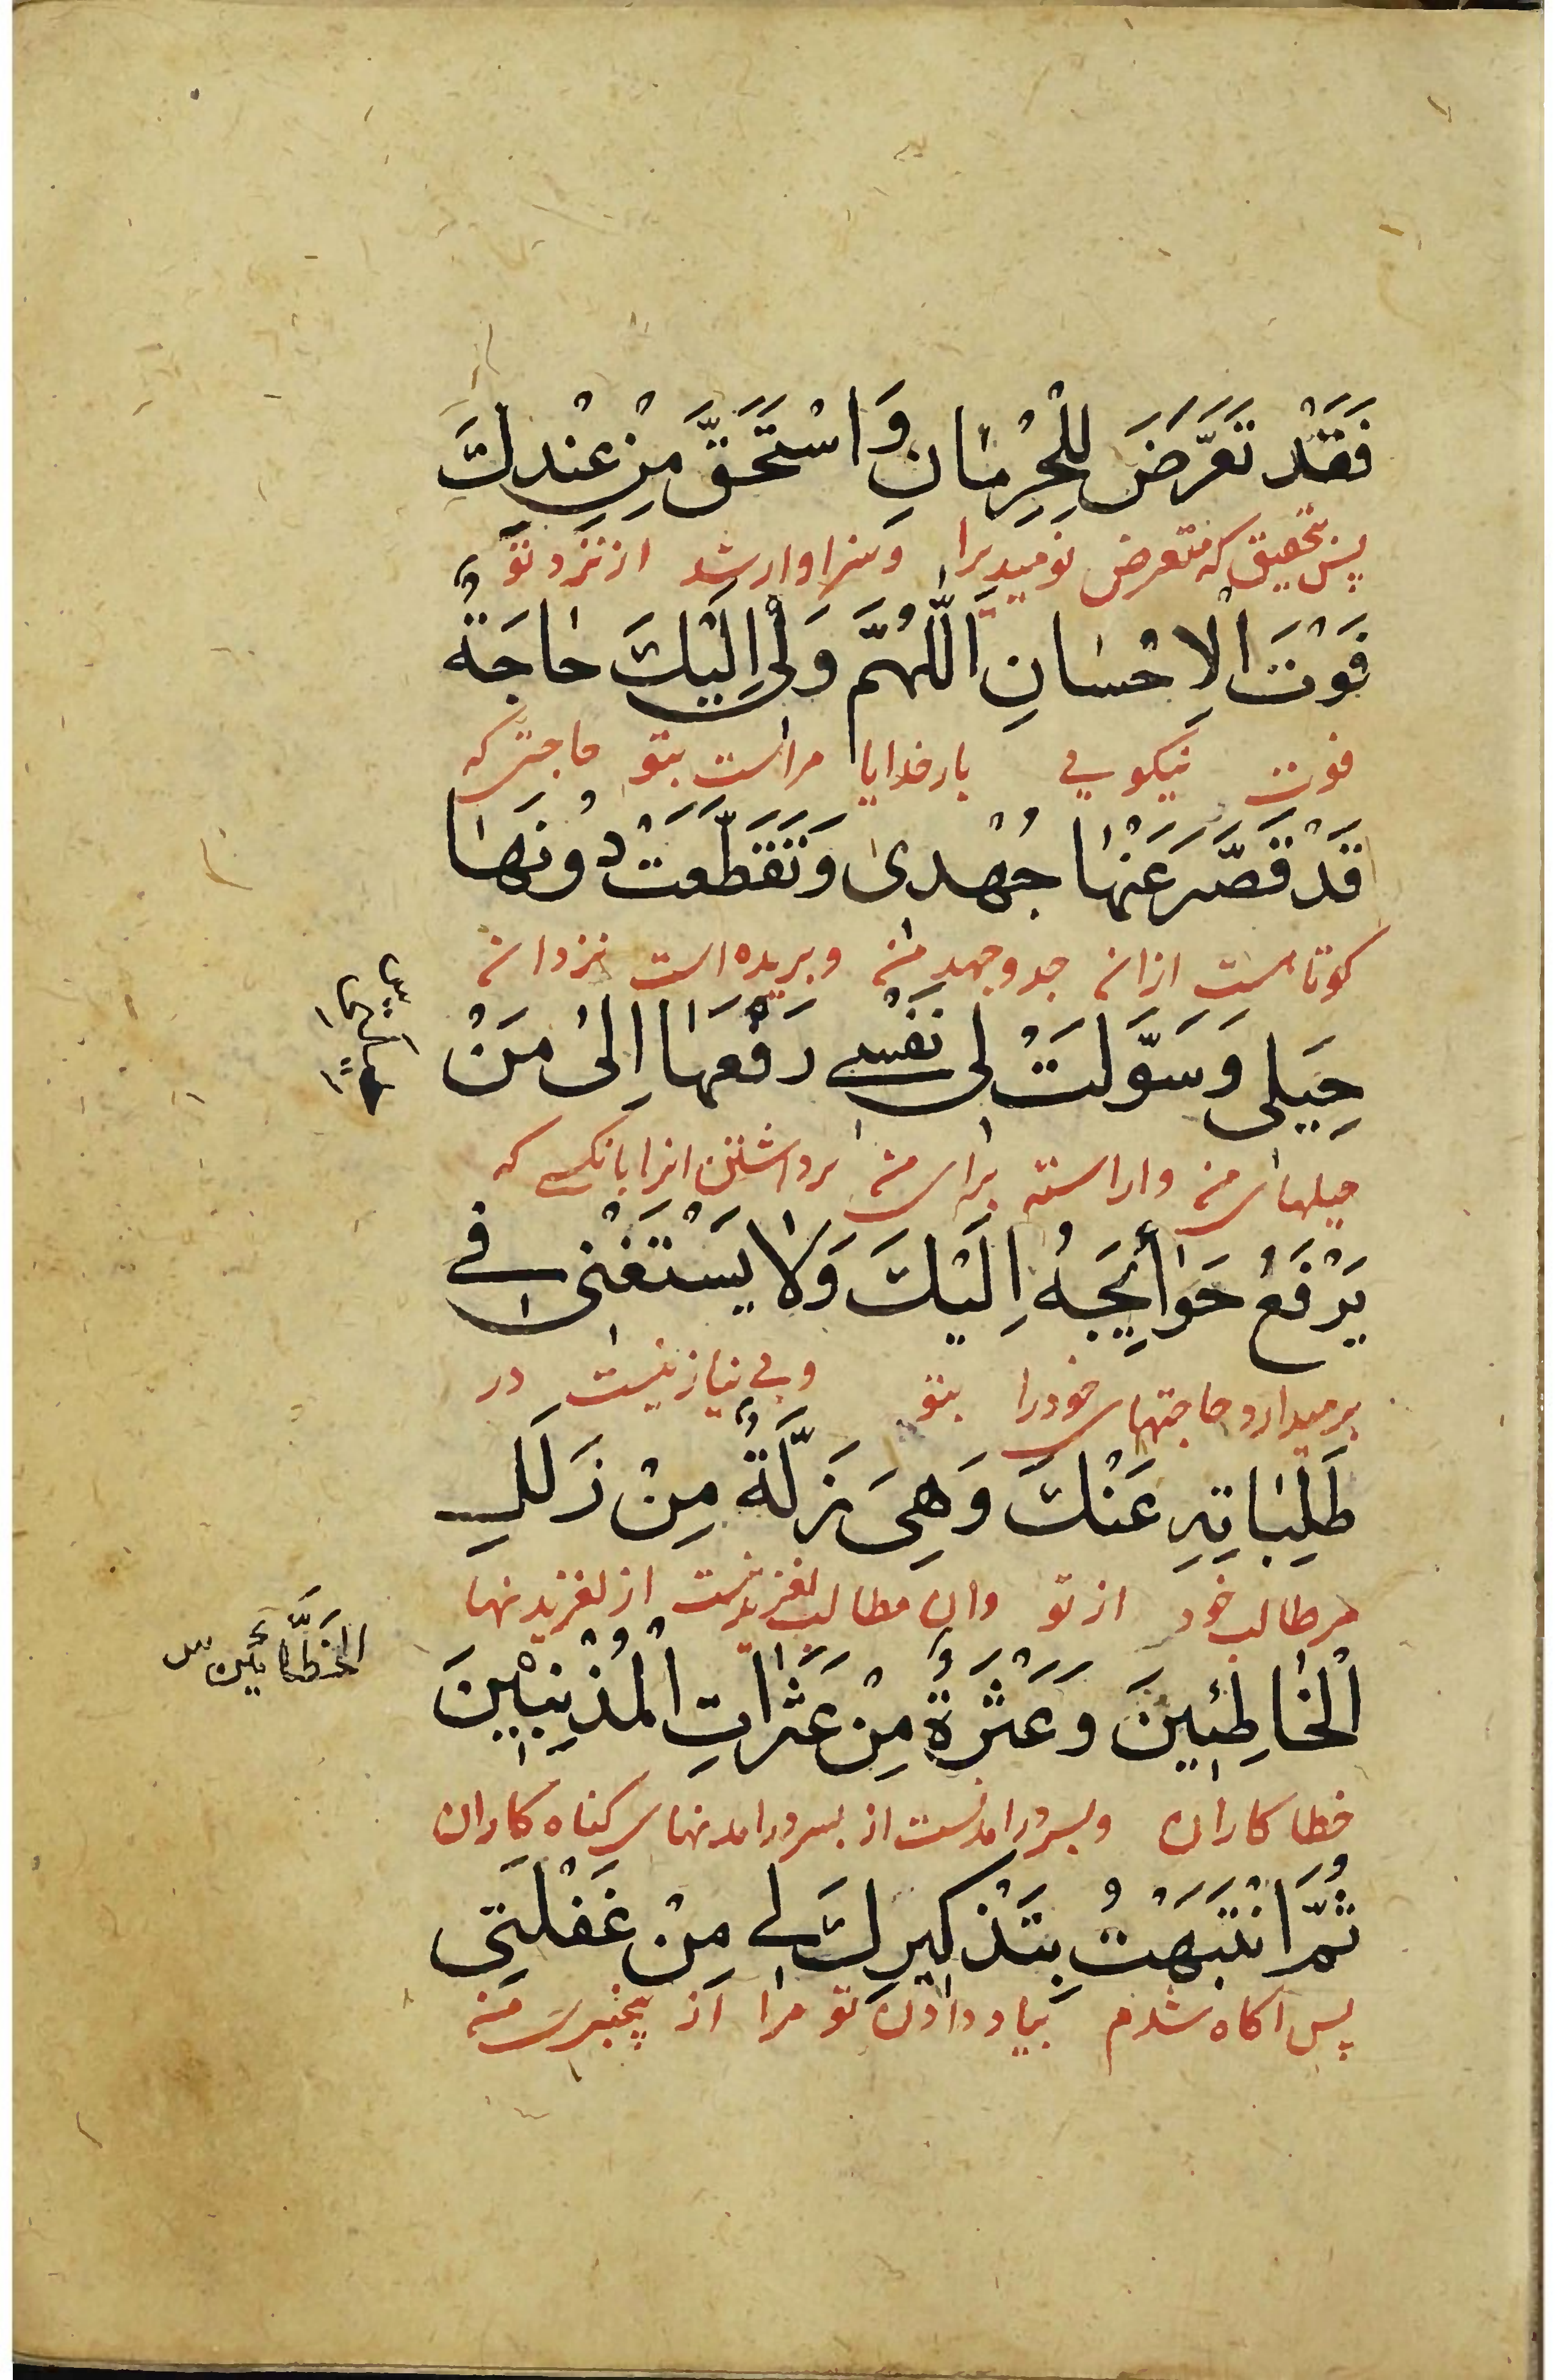 فَقَدْ تَعَرَّضَ لِلْحِرْمٰانِ وَاسْتَحَقَّ مِنْ عِنْدِكَ
پس بتحقیق که متعرض نومیدیرا وسزاوار شد از نزد تو
فَوْتَ الْاِحْسٰانِ اَللّٰهُمَّ وَلٖى اِلَيْكَ حٰاجَةٌ
فوت نیکویی بار خدایا مراست بتو حاجتی که
قَدْ قَصَّرَ عَنْهٰا جُهْدٖى وَتَقَطَّعَتْ دُونَهٰا
کوتاهست از ان جد وجهد من وبریده است نزد ان
حِيَلٖى وَسَوَّلَتْ لٖى نَفْسٖى رَفْعَهٰا اِلىٰ مَنْ
حیلهای من واراسته برای من برداشتن انرا بانکسی که
يَرْفَعُ حَوٰائِجَهُ اِلَيْكَ وَلٰا يَسْتَغْنٖى فٖى
برمیدارد حاجتهای خودرا بتو وبی نیاز نیست در
طَلِبٰاتِهِ عَنْكَ وَهِىَ زَلَّةٌ مِنْ زَلَلِ
مطالب خود از تو وان مطالب لغزیدنست از لغزیدنها
الْخٰاطِئٖينَ وَعَثْرَةٌ مِنْ عَثَرٰاتِ الْمُذْنِبٖينَ
الخَطَّائين س
خطا کاران وبسر درامدنست از بسر درامدنهای کناه کاران
ثُمَّ انْتَبَهْتُ بِتَذْكيرِكَ لٖى مِنْ غَفْلَتٖى
پس اکاه شدم بیاد دادن تو مرا از بیخبری من